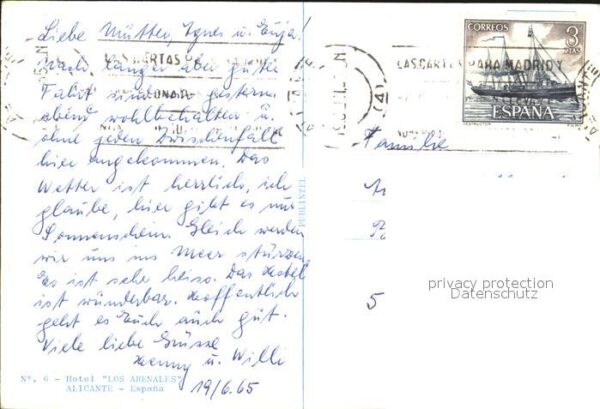 Liebe Mutter, Ignes u. Tuja!
Nach langer aber guter
Fahrt sind wir gestern
abend wohlbehalten u.
ohne jeden Zwischenfall
hier angekommen. Das
Wetter ist herrlich, ich
glaube, hier gibt es nur
Sonnenschein. Gleich werden
wir uns ins Meer stürzen.
Es ist sehr heiss. Das Hotel
ist wunderbar. Hoffentlich
geht es Euch auch gut.
Viele liebe Grüsse
Henny u. Willi
19/6.65
Nº. 6 - Hotel "LOS ARENALES"
ALICANTE - España
CORREOS
3
PTAS
ESPAÑA
LAS CARTAS PARA MADRID Y
Familie
5
privacy protection
Datenschutz